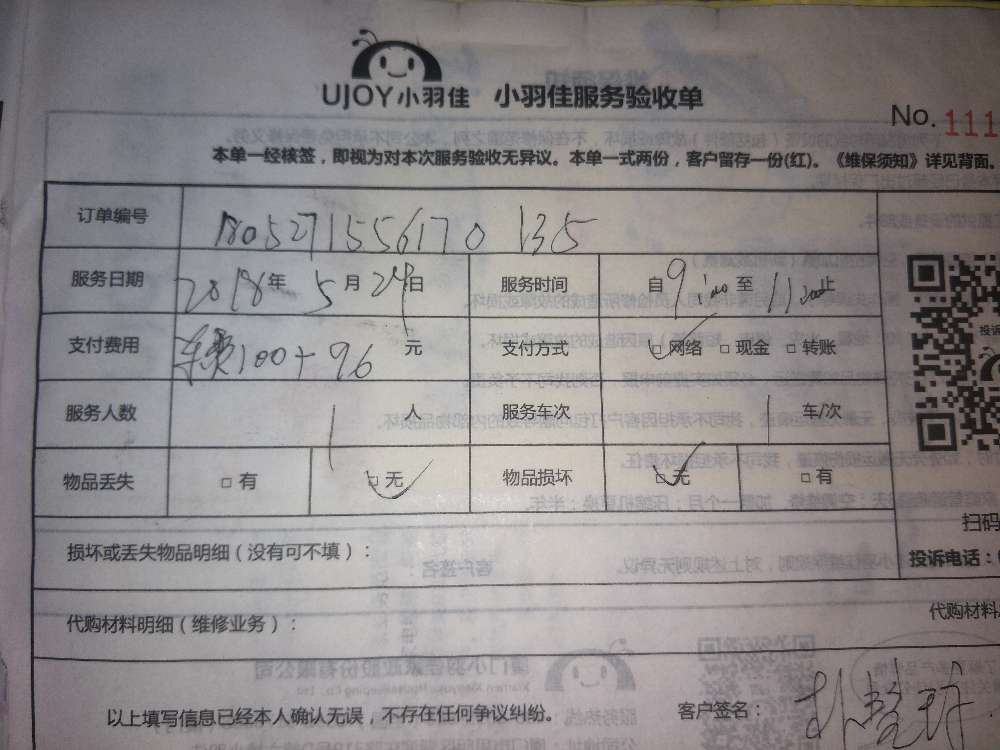 UJOY小羽佳 小羽佳服务验收单
No. 111
本单一经核签，即视为对本次服务验收无异议。本单一式两份，客户留存一份(红)。《维保须知》详见背面。
订单编号 1805271556170 135
服务日期 2018年 5月 24日 服务时间 自 9 至 11 止
支付费用 100+96 元 支付方式 □网络 □现金 □转账
服务人数 1 人 服务车次 1 车/次
物品丢失 □有 □无 物品损坏 □无 □有
扫码
损坏或丢失物品明细（没有可不填）： 投诉电话：
代购材料明细（维修业务）： 代购材料
以上填写信息已经本人确认无误，不存在任何争议纠纷。 客户签名：